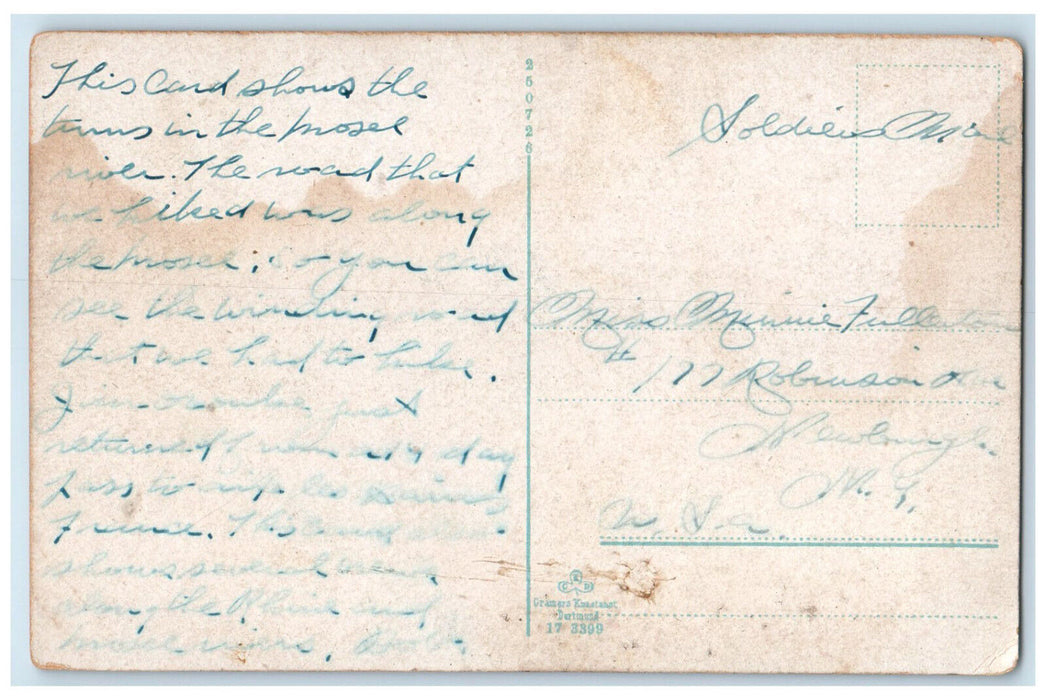 This Card shows the
turns in the Mosel
river. The road that
we hiked was along
the Mosel, so you can
see the winding road
that we had to hike.
just
returned from a 14 day
pass to Aix les Bains
France. This card also
shows several towns
along the Rhine and
Mosel rivers.
250726
Soldiers Mail
Miss Minnie Fullerton
# 177 Robinson Ave
Newburgh.
N. Y.
U. S. A.
C K D
Cramers Kunstanst.
Dortmund
17 3399